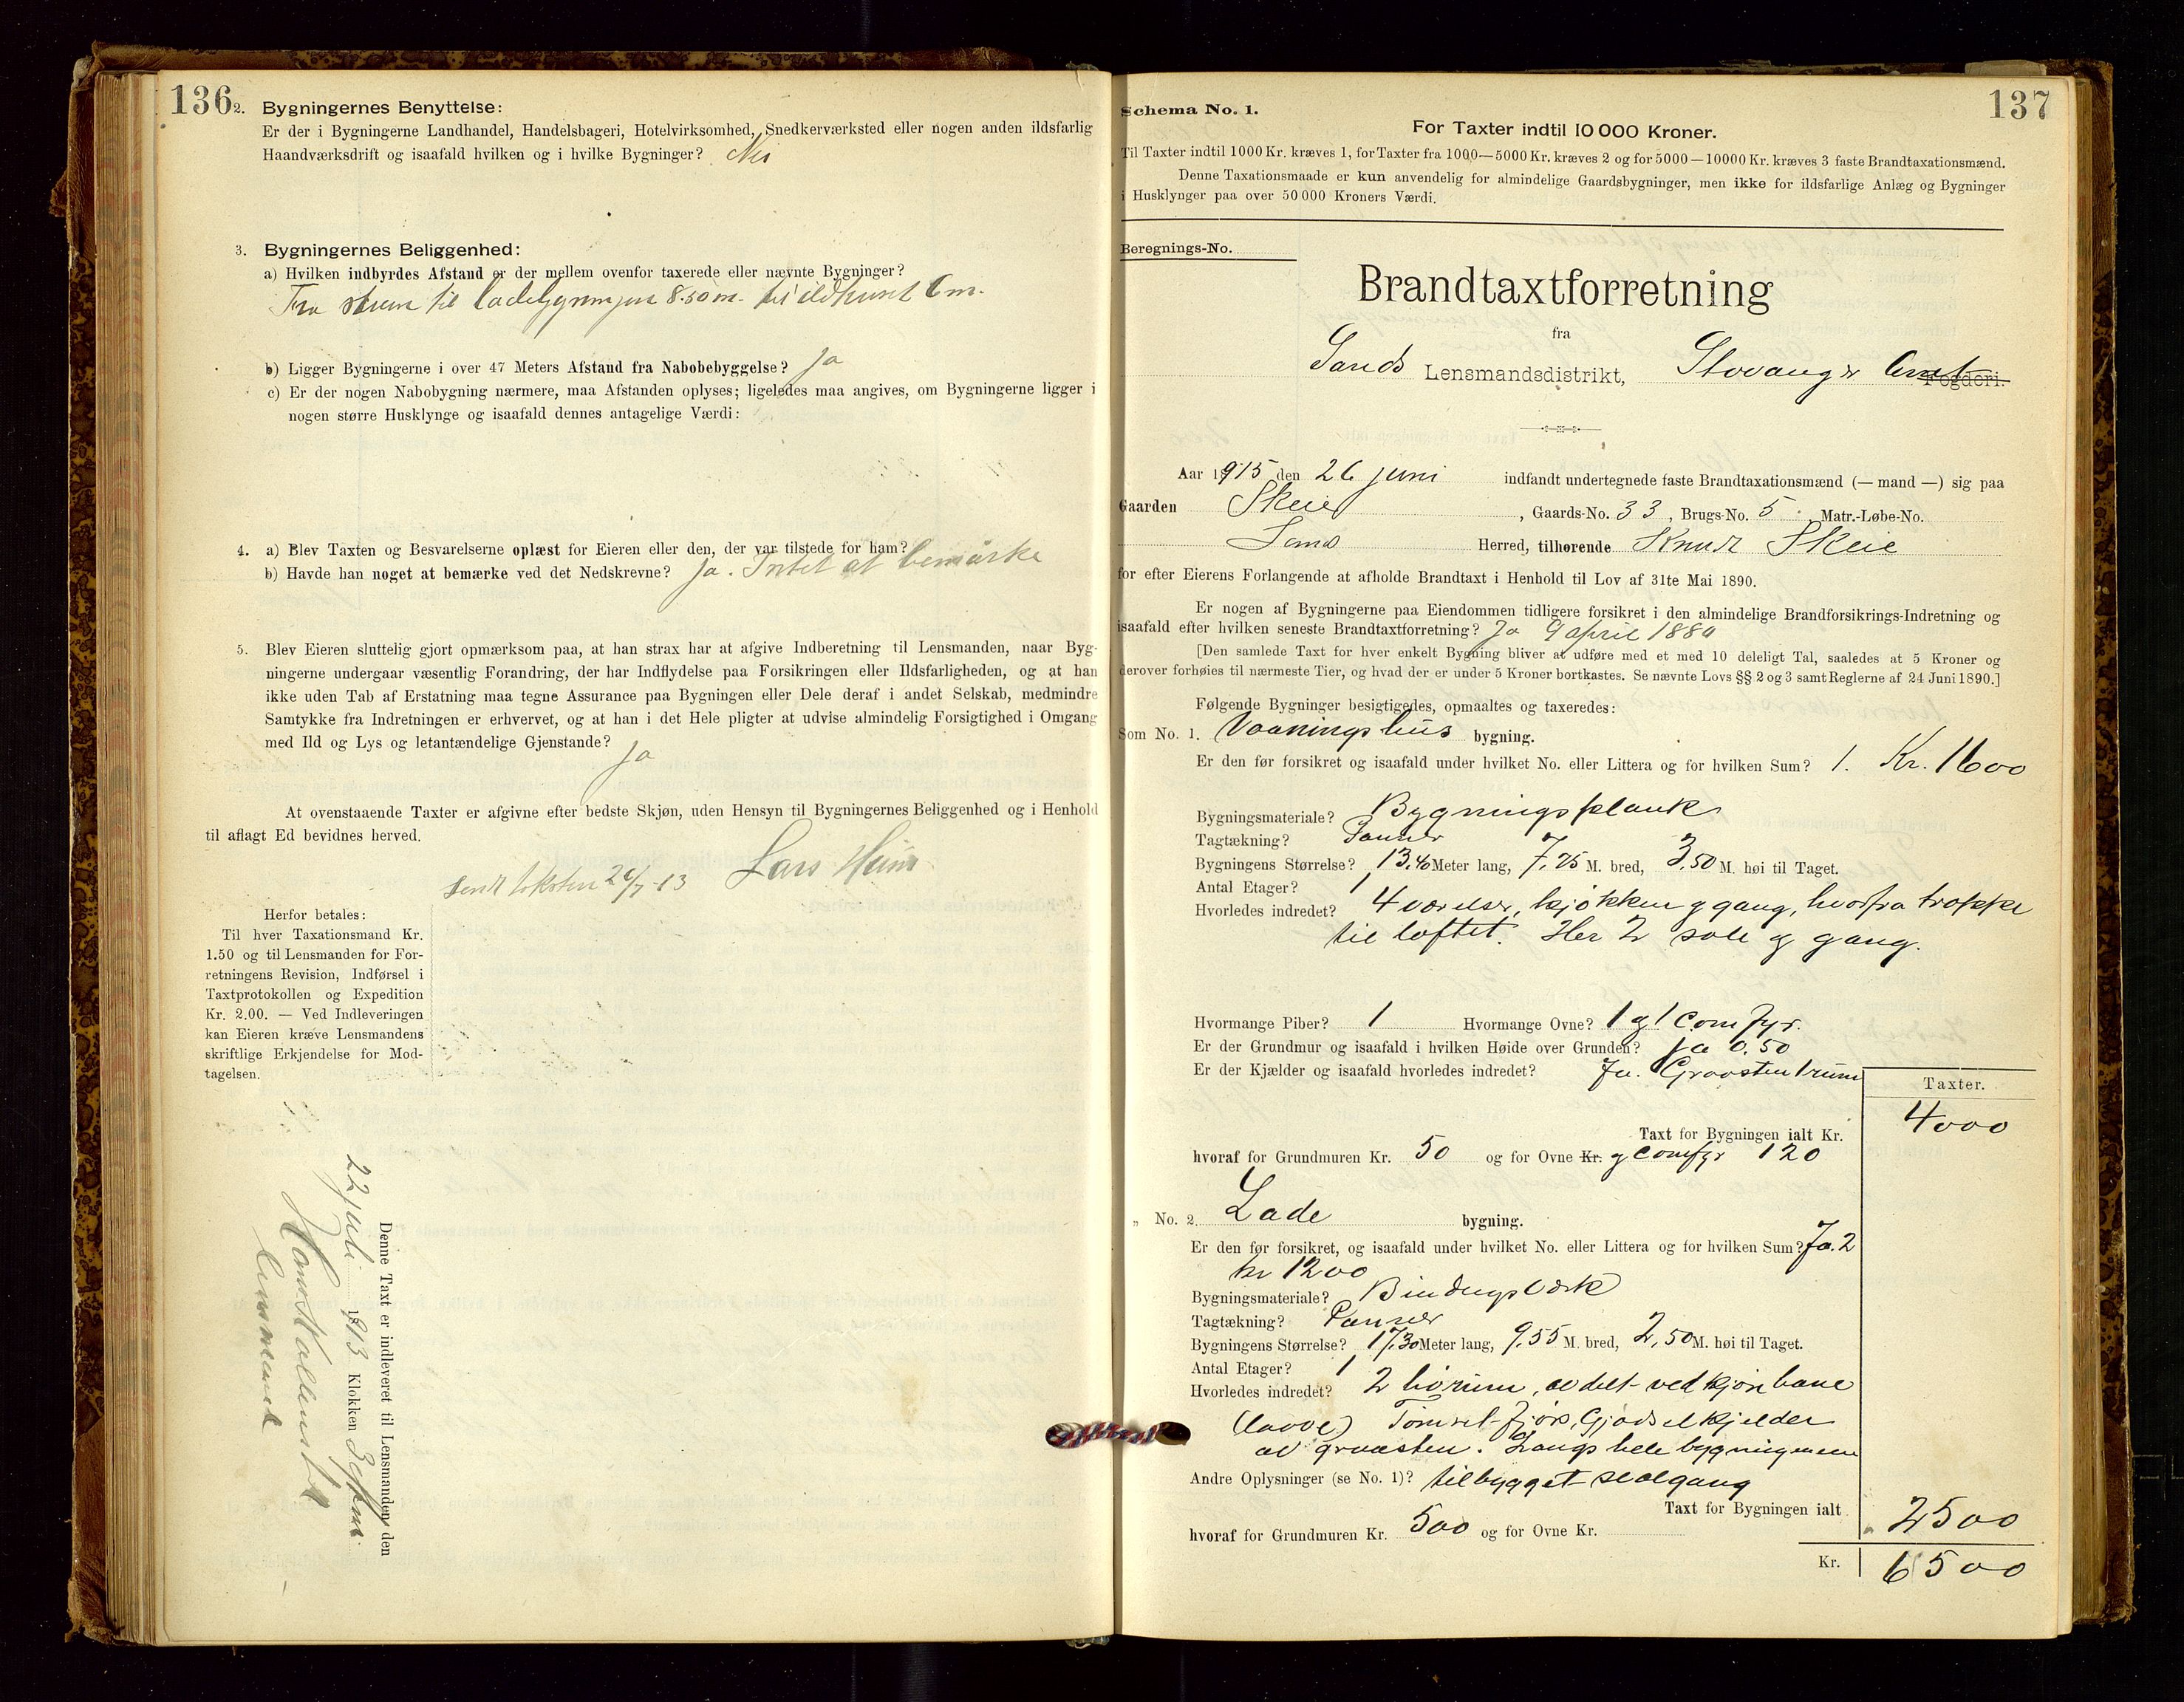 136
2. Bygningernes Benyttelse:
Er der i Bygningerne Landhandel, Handelsbageri, Hotelvirksomhed, Snedkerværksted eller nogen anden ildsfarlig
Haandværksdrift og isaafald hvilken og i hvilke Bygninger? Nei
3. Bygningernes Beliggenhed:
a) Hvilken indbyrdes Afstand er der mellem ovenfor taxerede eller nævnte Bygninger?
Fra stuen til ladebygningen 8.50 m. til ildhuset 6 m.
b) Ligger Bygningerne i over 47 Meters Afstand fra Nabobebyggelse? Ja
c) Er der nogen Nabobygning nærmere, maa Afstanden oplyses; ligeledes maa angives, om Bygningerne ligger i
nogen større Husklynge og isaafald dennes antagelige Værdi:
4. a) Blev Taxten og Besvarelserne oplæst for Eieren eller den, der var tilstede for ham?
b) Havde han noget at bemærke ved det Nedskrevne? Ja. Intet at bemærke
5. Blev Eieren sluttelig gjort opmærksom paa, at han strax har at afgive Indberetning til Lensmanden, naar Byg-
ningerne undergaar væsentlig Forandring, der har Indflydelse paa Forsikringen eller Ildsfarligheden, og at han
ikke uden Tab af Erstatning maa tegne Assurance paa Bygningen eller Dele deraf i andet Selskab, medmindre
Samtykke fra Indretningen er erhvervet, og at han i det Hele pligter at udvise almindelig Forsigtighed i Omgang
med Ild og Lys og letantændelige Gjenstande? Ja
At ovenstaaende Taxter er afgivne efter bedste Skjøn, uden Hensyn til Bygningernes Beliggenhed og i Henhold
til aflagt Ed bevidnes herved.
Lars Heim
Herfor betales:
Til hver Taxationsmand Kr.
1.50 og til Lensmanden for For-
retningens Revision, Indførsel i
Taxtprotokollen og Expedition
Kr. 2.00. — Ved Indleveringen
kan Eieren kræve Lensmandens
skriftlige Erkjendelse for Mod-
tagelsen.
Denne Taxt er indleveret til Lensmanden den
22 juli 1913 Klokken
lensmand
137
Schema No. 1.
For Taxter indtil 10 000 Kroner.
Til Taxter indtil 1000 Kr. kræves 1, for Taxter fra 1000—5000 Kr. kræves 2 og for 5000—10000 Kr. kræves 3 faste Brandtaxationsmænd.
Denne Taxationsmaade er kun anvendelig for almindelige Gaardsbygninger, men ikke for ildsfarlige Anlæg og Bygninger
i Husklynger paa over 50 000 Kroners Værdi.
Beregnings-No.
Brandtaxtforretning
fra
Sands Lensmandsdistrikt, Stavanger Amt Fogderi.
Aar 1915 den 26 juni indfandt undertegnede faste Brandtaxationsmænd (— mand —) sig paa
Gaarden Skeie, Gaards-No. 33, Brugs-No. 5 Matr.-Løbe-No.
Sands Herred, tilhørende Knud Skeie
for efter Eierens Forlangende at afholde Brandtaxt i Henhold til Lov af 31te Mai 1890.
Er nogen af Bygningerne paa Eiendommen tidligere forsikret i den almindelige Brandforsikrings-Indretning og
isaafald efter hvilken seneste Brandtaxtforretning? Ja 9 april
[Den samlede Taxt for hver enkelt Bygning bliver at udføre med et med 10 deleligt Tal, saaledes at 5 Kroner og
derover forhøies til nærmeste Tier, og hvad der er under 5 Kroner bortkastes. Se nævnte Lovs §§ 2 og 3 samt Reglerne af 24 Juni 1890.]
Følgende Bygninger besigtigedes, opmaaltes og taxeredes:
Som No. 1. Vaaningshus bygning.
Er den før forsikret og isaafald under hvilket No. eller Littera og for hvilken Sum? 1. Kr. 1600
Bygningsmateriale? Bygningsplank
Tagtækning? Panner
Bygningens Størrelse? 13.40 Meter lang, 7.25 M. bred, 3,50 M. høi til Taget.
Antal Etager? 1
Hvorledes indredet? 4 værelser, kjøkken og gang, hvorfra trappe
til loftet. Her 2 sale og gang.
Hvormange Piber? 1 Hvormange Ovne? 1 og 1 Comfyr.
Er der Grundmur og isaafald i hvilken Høide over Grunden? ja 0.50
Er der Kjælder og isaafald hvorledes indredet? Ja. Graasten 1 rum
Taxter.
Taxt for Bygningen ialt Kr. 4000
hvoraf for Grundmuren Kr. 50 og for Ovne Kr. og Comfyr 120
„ No. 2. Lade bygning.
Er den før forsikret, og isaafald under hvilket No. eller Littera og for hvilken Sum? Ja. 2
kr 1200
Bygningsmateriale? Bindingsværk
Tagtækning? Panner
Bygningens Størrelse? 17.30 Meter lang, 9,55 M. bred, 2,50 M. høi til Taget.
Antal Etager? 1
Hvorledes indredet? 2 hørum, avdelt ved kjørebane
(laave) Tømret fjøs, Gjødselkjelder
av graasten. Langs hele bygningen
Andre Oplysninger (se No. 1)? tilbygget svalgang
Taxt for Bygningen ialt 2500
hvoraf for Grundmuren Kr. 500 og for Ovne Kr.
Kr. 6500